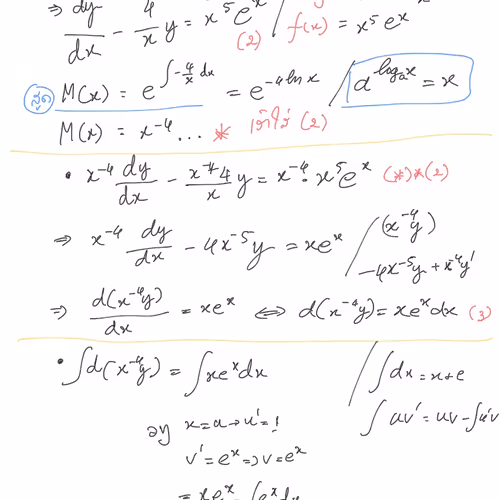 ⇒ dy/dx - 4/x y = x⁵eˣ (2) / f(x) = x⁵eˣ
สูตร M(x) = e^∫-4/x dx = e^-4lnx / a^logₐx = x
M(x) = x⁻⁴ ... * เข้าใส่ (2)
• x⁻⁴ dy/dx - x⁻⁴4/x y = x⁻⁴ · x⁵eˣ (*)*(2)
⇒ x⁻⁴ dy/dx - 4x⁻⁵y = xeˣ / (x⁻⁴y)'
-4x⁻⁵y + x⁻⁴y'
⇒ d(x⁻⁴y)/dx = xeˣ ⇔ d(x⁻⁴y) = xeˣdx (3)
• ∫d(x⁻⁴y) = ∫xeˣdx / ∫dx = x+c
∫uv' = uv - ∫u'v
x = u → u' = 1
v' = eˣ ⇒ v = eˣ
= xeˣ - ∫eˣdx